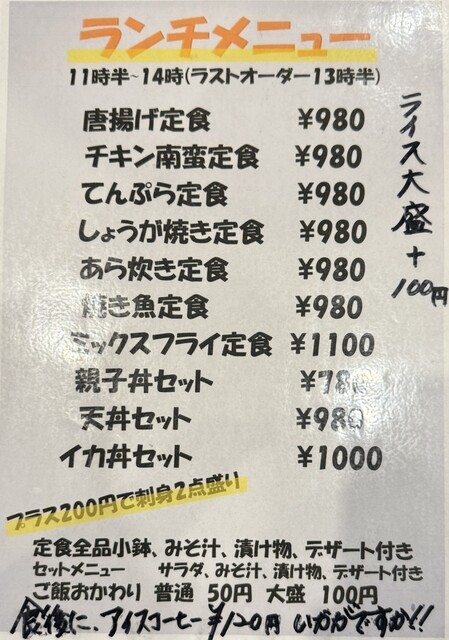 ランチメニュー
11時半~14時(ラストオーダー13時半)
唐揚げ定食 ¥980
チキン南蛮定食 ¥980
てんぷら定食 ¥980
しょうが焼き定食 ¥980
あら炊き定食 ¥980
焼き魚定食 ¥980
ミックスフライ定食 ¥1100
親子丼セット ¥780
天丼セット ¥980
イカ丼セット ¥1000
ライス大盛+100円
プラス200円で刺身2点盛り
定食全品小鉢、みそ汁、漬け物、デザート付き
セットメニュー サラダ、みそ汁、漬け物、デザート付き
ご飯おかわり 普通 50円 大盛 100円
食後に、アイスコーヒー¥120円 いかがですか!!